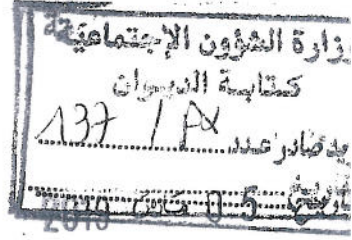 وزارة الشؤون الإجتماعية
كتابة الديوان
بريد صادر عدد 137 /
05 مارس 2010